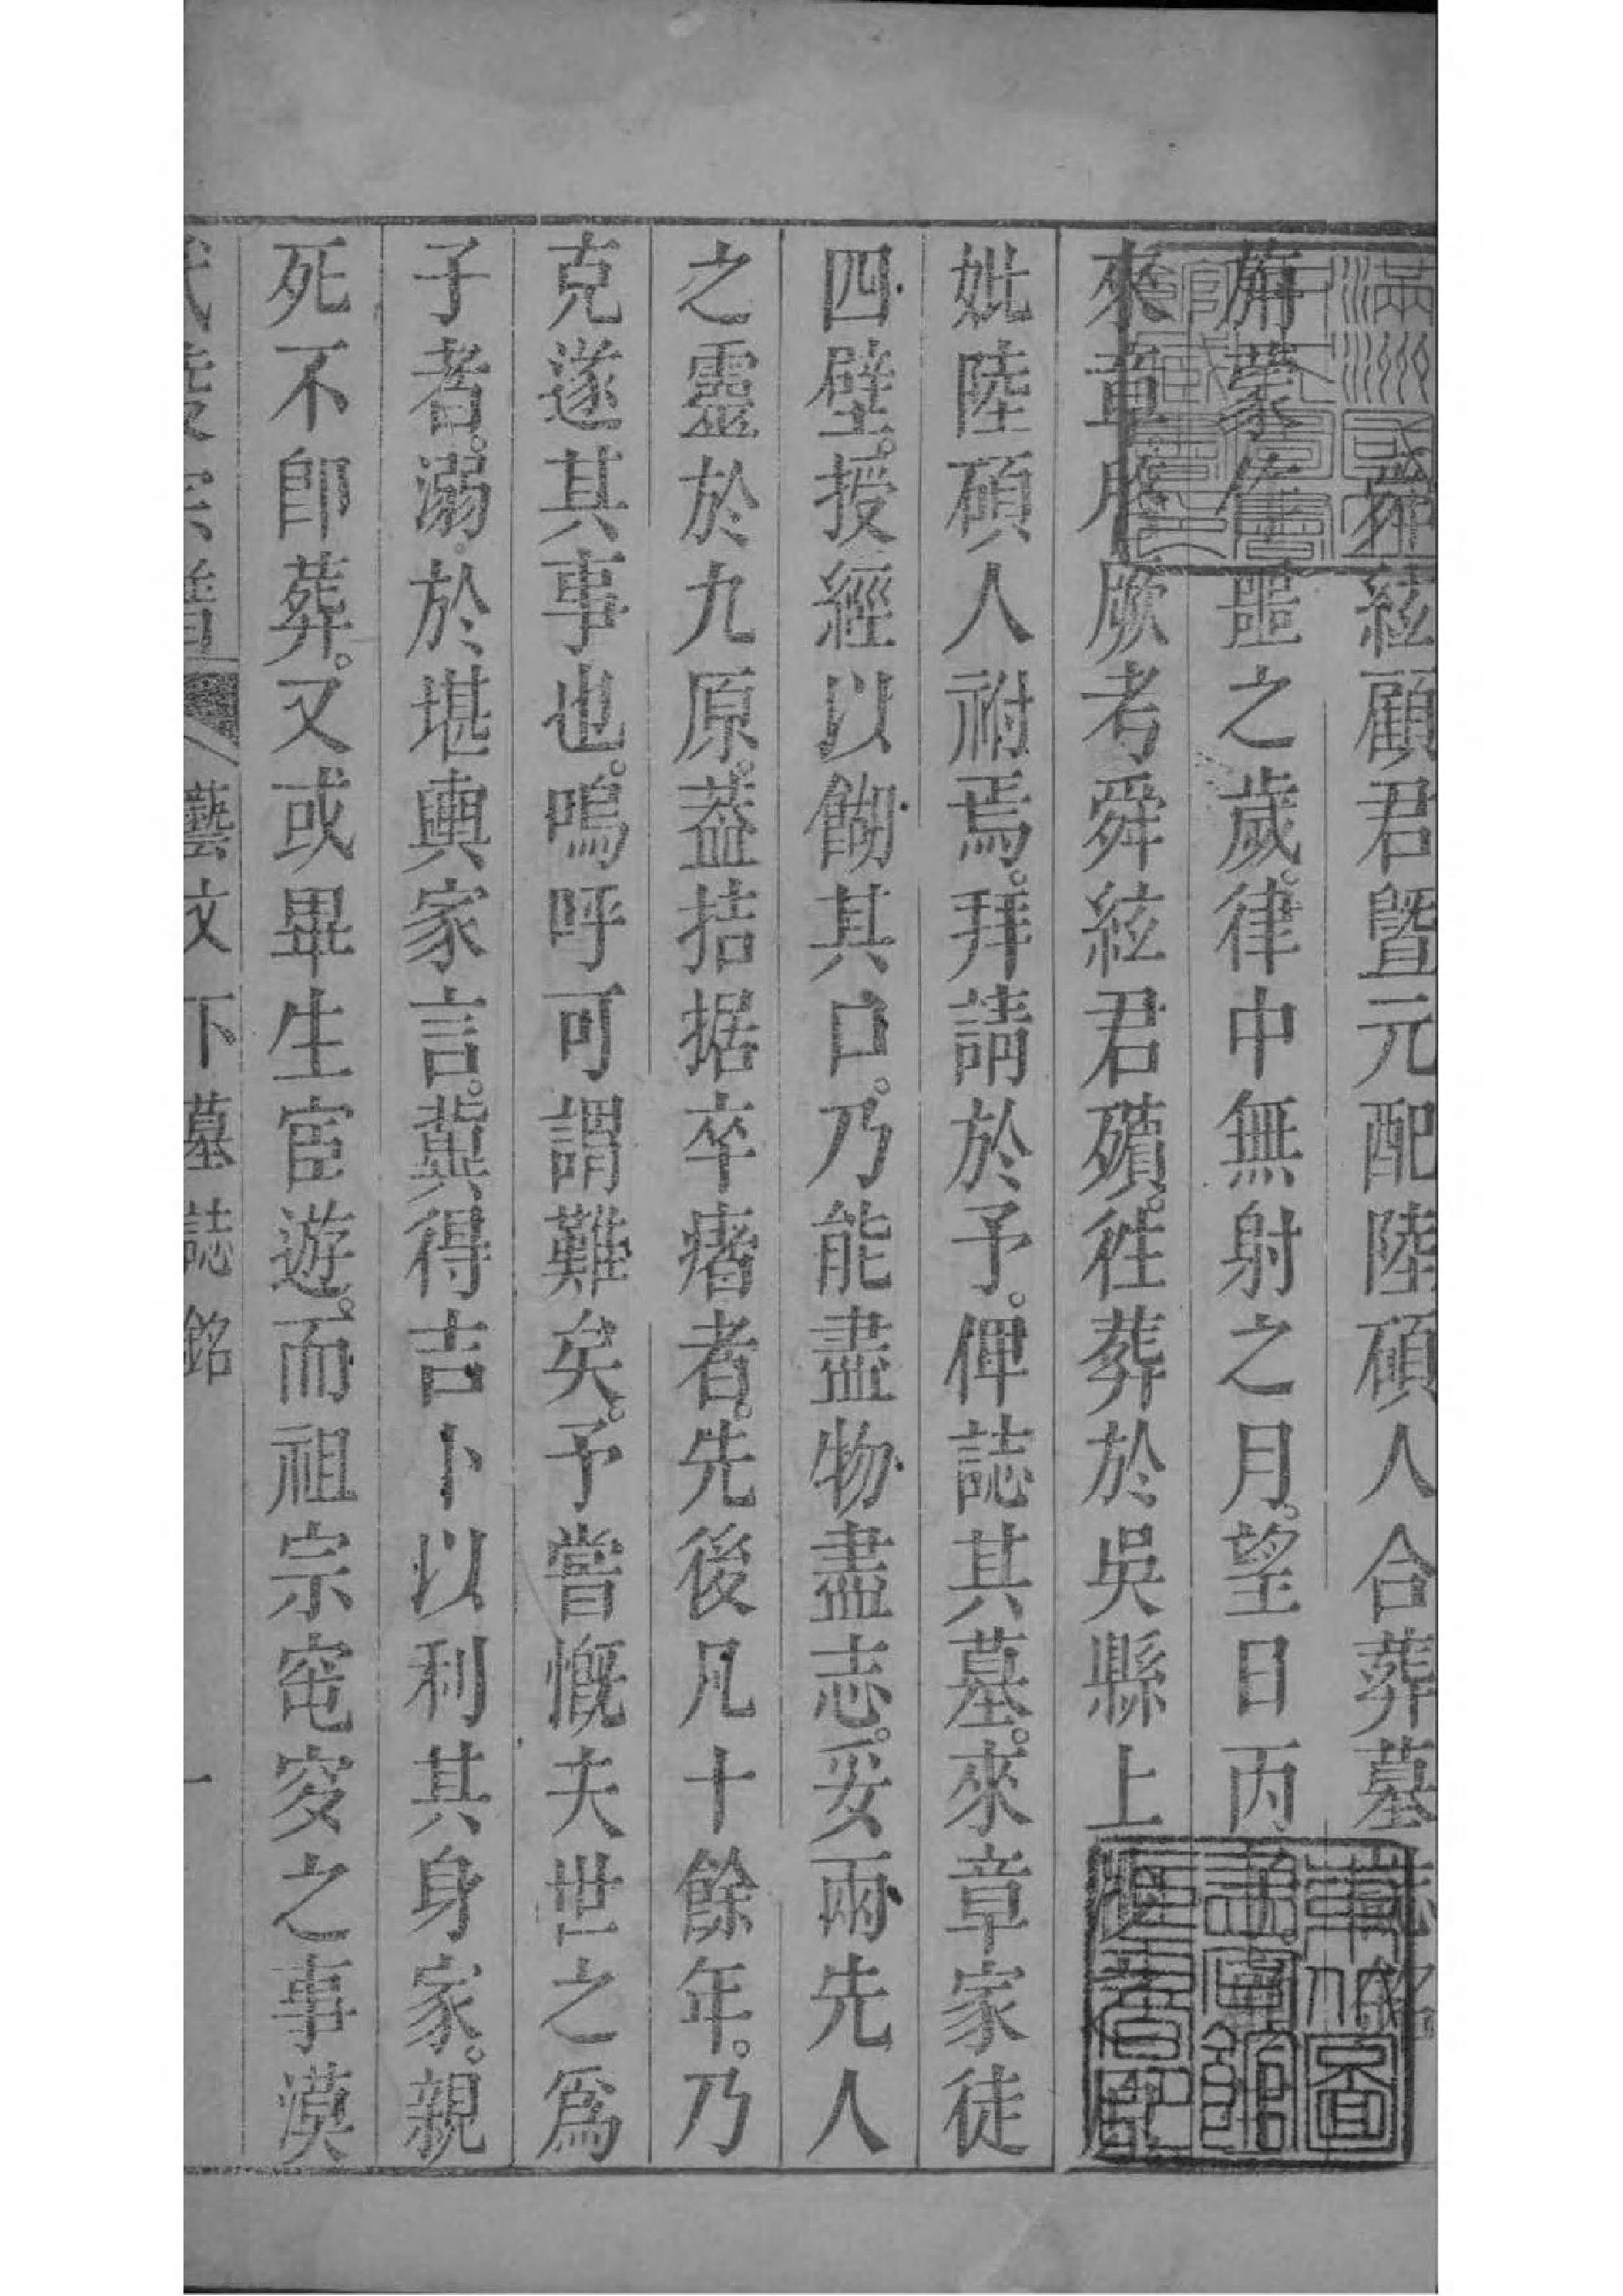 舜絃顧君暨元配陸碩人合葬墓誌銘
旃蒙作噩之歲律中無射之月望日丙子
來章啟厥考舜絃君殯徃葬於吳縣上
妣陸碩人祔焉拜請於予俾誌其墓來章家徒
四壁授經以餬其口乃能盡物盡志妥兩先人
之靈於九原葢拮据卒瘏者先後凡十餘年乃
克遂其事也嗚呼可謂難矣予嘗慨夫世之爲
子者溺於堪輿家言冀得吉卜以利其身家親
死不卽葬又或畢生宦遊而祖宗窀穸之事漠
藝文下墓誌銘
一